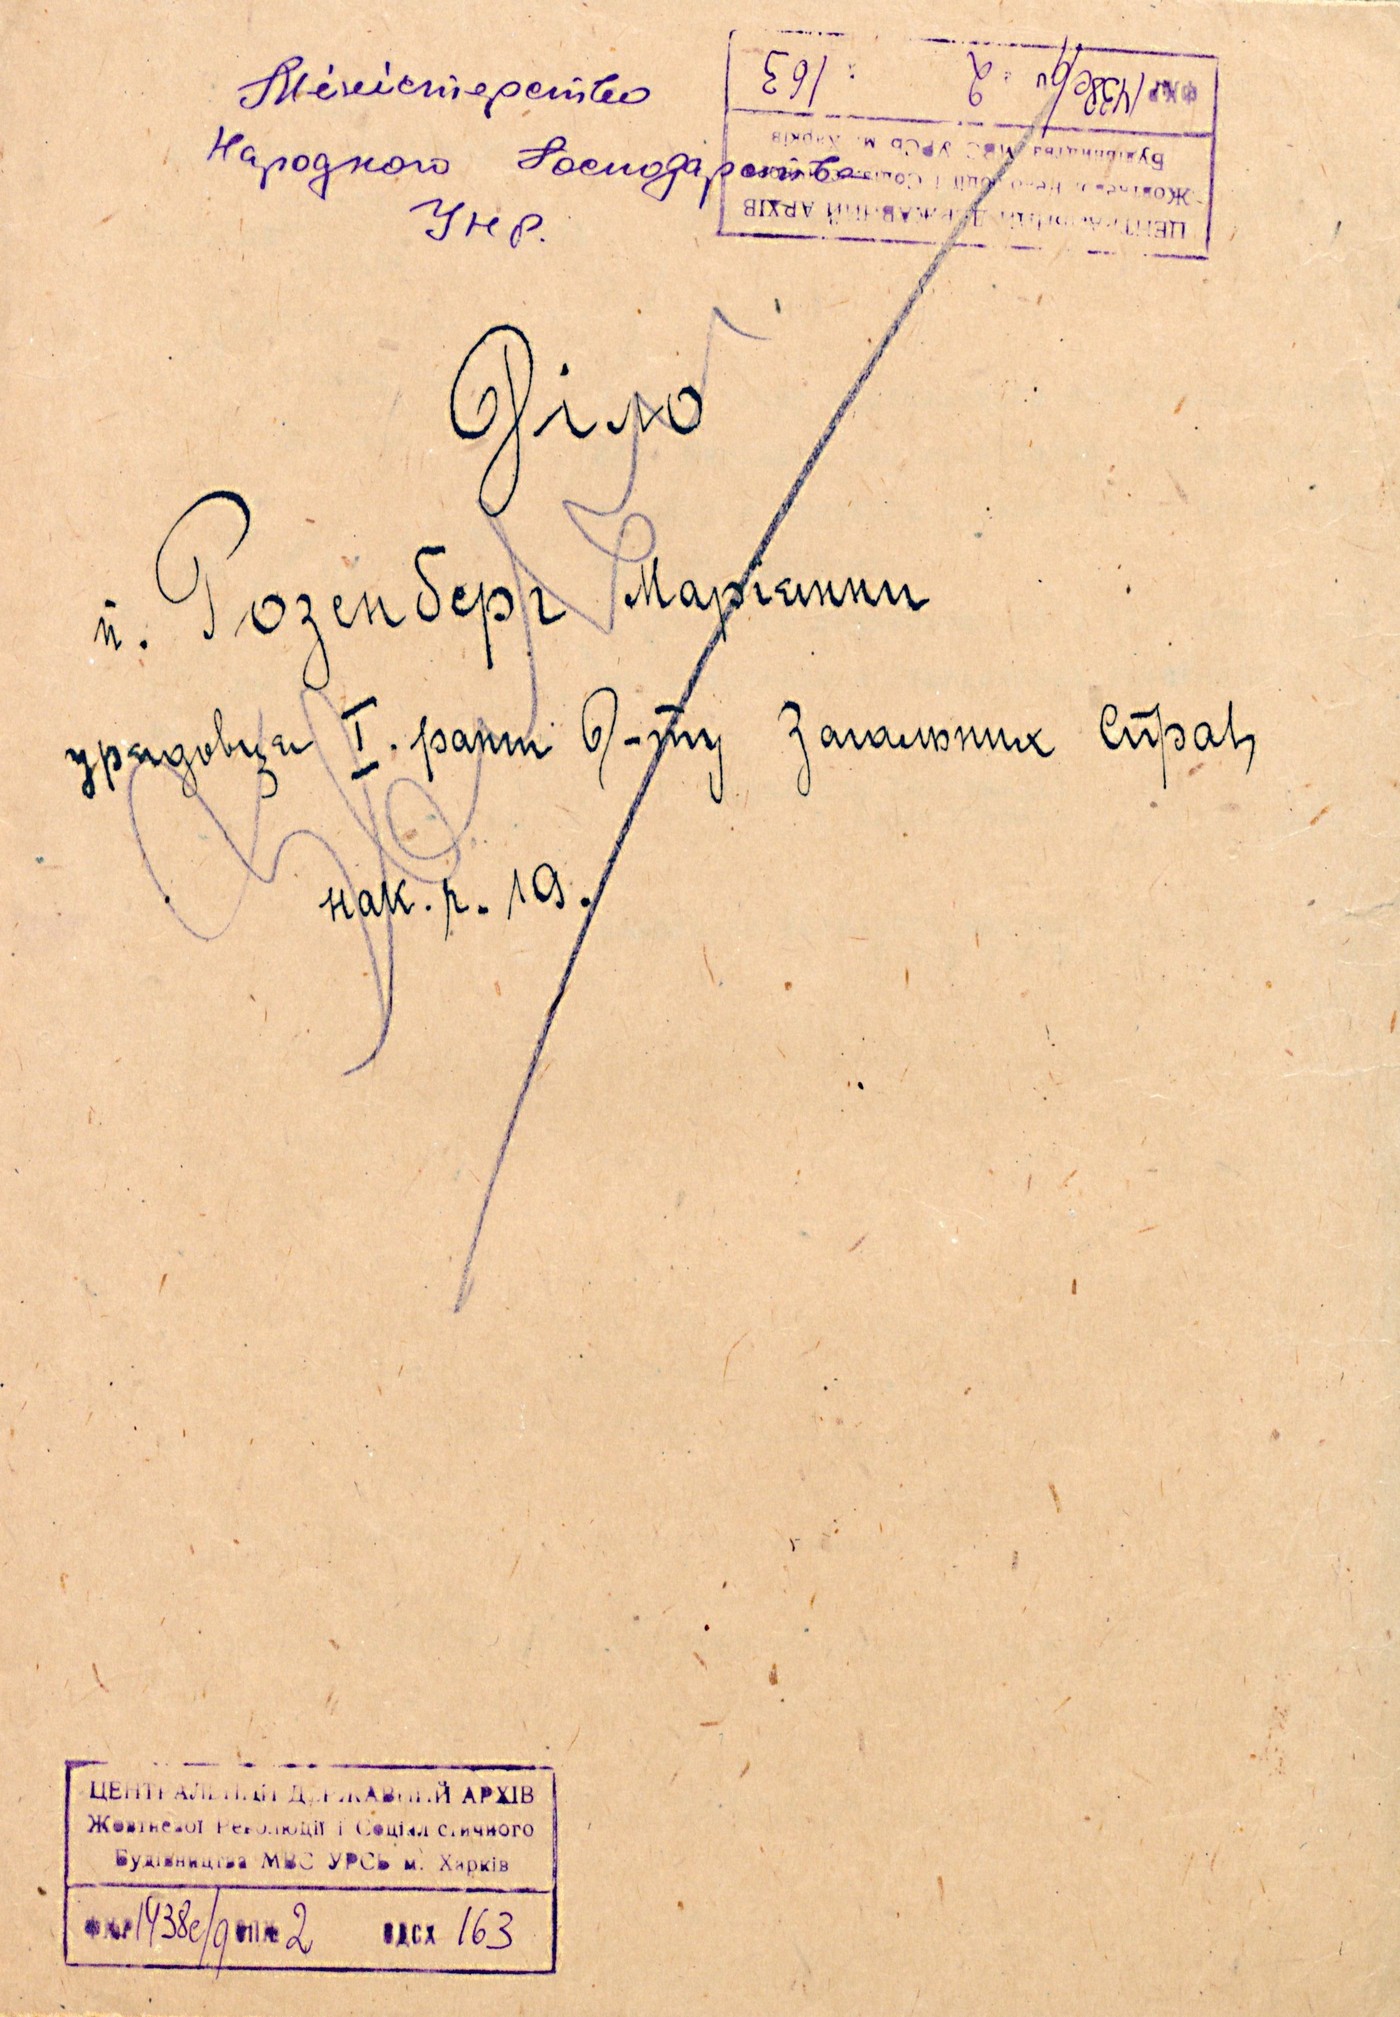 Міністерство
Народного Господарства
УНР.
Діло
п. Розенберг Маріанни
урядовця І. ранги Д-ту Загальних Справ,
нак. р. 19.
ЦЕНТРАЛЬНИЙ ДЕРЖАВНИЙ АРХІВ
Жовтневої Революції і Соціалістичного
Будівництва МВС УРСР м. Харків
1438с/9 2 163
ЦЕНТРАЛЬНИЙ ДЕРЖАВНИЙ АРХІВ
Жовтневої Революції і Соціалістичного
Будівництва МВС УРСР м. Харків
ФКР 1438с/9 ОПК 2 ОДСХ 163